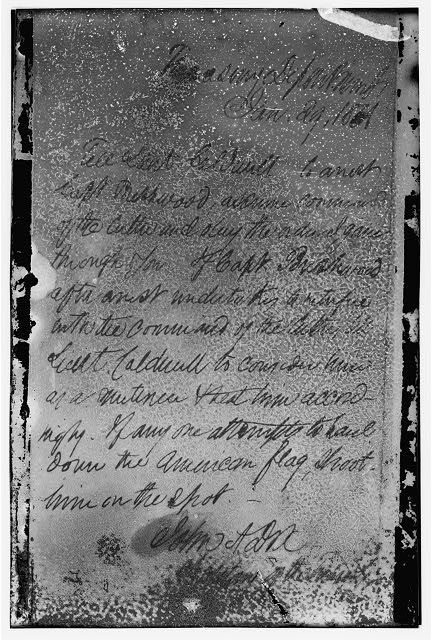 Treasury Department
Jan. 29, 1861
Tell Lieut Caldwell to arrest
Capt Breshwood assume command
of the Cutter and obey the order I gave
through you. If Capt Breshwood
after arrest undertakes to interfere
with the command of the Cutter tell
Lieut. Caldwell to consider him
as a mutineer & treat him accord-
ingly. If any one attempts to haul
down the American flag, shoot
him on the spot –
John A. Dix
Secretary of the Treasury